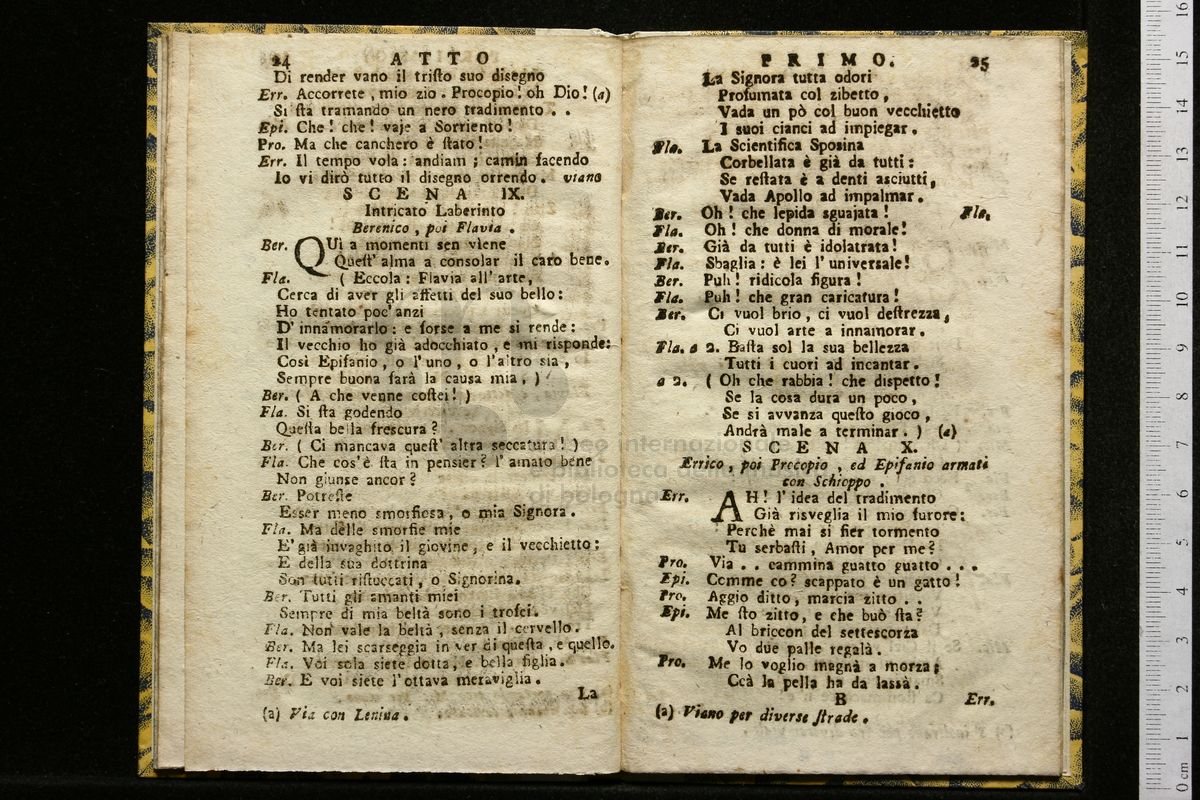 24 ATTO
Di render vano il triſto suo disegno
Err. Accorrete, mio zio. Procopio! oh Dio! (a)
Si ſta tramando un nero tradimento . .
Epi. Che! che! vaje a Sorriento!
Pro. Ma che canchero è ſtato!
Err. Il tempo vola: andiam; camin facendo
Io vi dirò tutto il disegno orrendo. viano
SCENA IX.
Intricato Laberinto
Berenico, poi Flavia.
Ber. QUì a momenti sen viene
Queſt' alma a consolar il caro bene.
Fla. ( Eccola: Flavia all' arte,
Cerca di aver gli affetti del suo bello:
Ho tentato poc' anzi
D' innamorarlo: e forse a me si rende:
Il vecchio ho già adocchiato, e mi risponde:
Così Epifanio, o l' uno, o l'altro sia,
Sempre buona sarà la causa mia. )
Ber. ( A che venne coſtei! )
Fla. Si ſta godendo
Queſta bella frescura?
Ber. ( Ci mancava queſt' altra seccatura! )
Fla. Che cos'è ſta in pensier? l' amato bene
Non giunse ancor?
Ber. Potreſte
Esser meno smorfiosa, o mia Signora.
Fla. Ma delle smorfie mie
E' già invaghito il giovine, e il vecchietto;
E della sua dottrina
Son tutti riſtuccati, o Signorina.
Ber. Tutti gli amanti miei
Sempre di mia beltà sono i trofei.
Fla. Non vale la beltà, senza il cervello.
Ber. Ma lei scarseggia in ver di queſta, e quello.
Fla. Voi sola siete dotta, e bella figlia.
Ber. E voi siete l'ottava meraviglia.
La
(a) Via con Lenina.
PRIMO. 25
La Signora tutta odori
Profumata col zibetto,
Vada un pò col buon vecchietto
I suoi cianci ad impiegar.
Fla. La Scientifica Sposina
Corbellata è già da tutti:
Se reſtata è a denti asciutti,
Vada Apollo ad impalmar.
Ber. Oh! che lepida sguajata! Fla.
Fla. Oh! che donna di morale!
Ber. Già da tutti è idolatrata!
Fla. Sbaglia: è lei l'universale!
Ber. Puh! ridicola figura!
Fla. Puh! che gran caricatura!
Ber. Ci vuol brio, ci vuol deſtrezza,
Ci vuol arte a innamorar.
Fla. a 2. Baſta sol la sua bellezza
Tutti i cuori ad incantar.
a 2. ( Oh che rabbia! che dispetto!
Se la cosa dura un poco,
Se si avvanza queſto gioco,
Andrà male a terminar. ) (a)
SCENA X.
Errico, poi Procopio, ed Epifanio armati
con Schioppo.
Err. AH! l'idea del tradimento
Già risveglia il mio furore:
Perchè mai sì fier tormento
Tu serbaſti, Amor per me?
Pro. Via . . cammina guatto guatto . . .
Epi. Comme co? scappato è un gatto!
Pro. Aggio ditto, marcia zitto . .
Epi. Me ſto zitto, e che buò ſta?
Al briccon del settescorza
Vo due palle regalà.
Pro. Me lo voglio magnà a morza;
Ccà la pella ha da lassà.
B Err.
(a) Viano per diverse ſtrade.
museo internazionale
e biblioteca della musica
di bologna